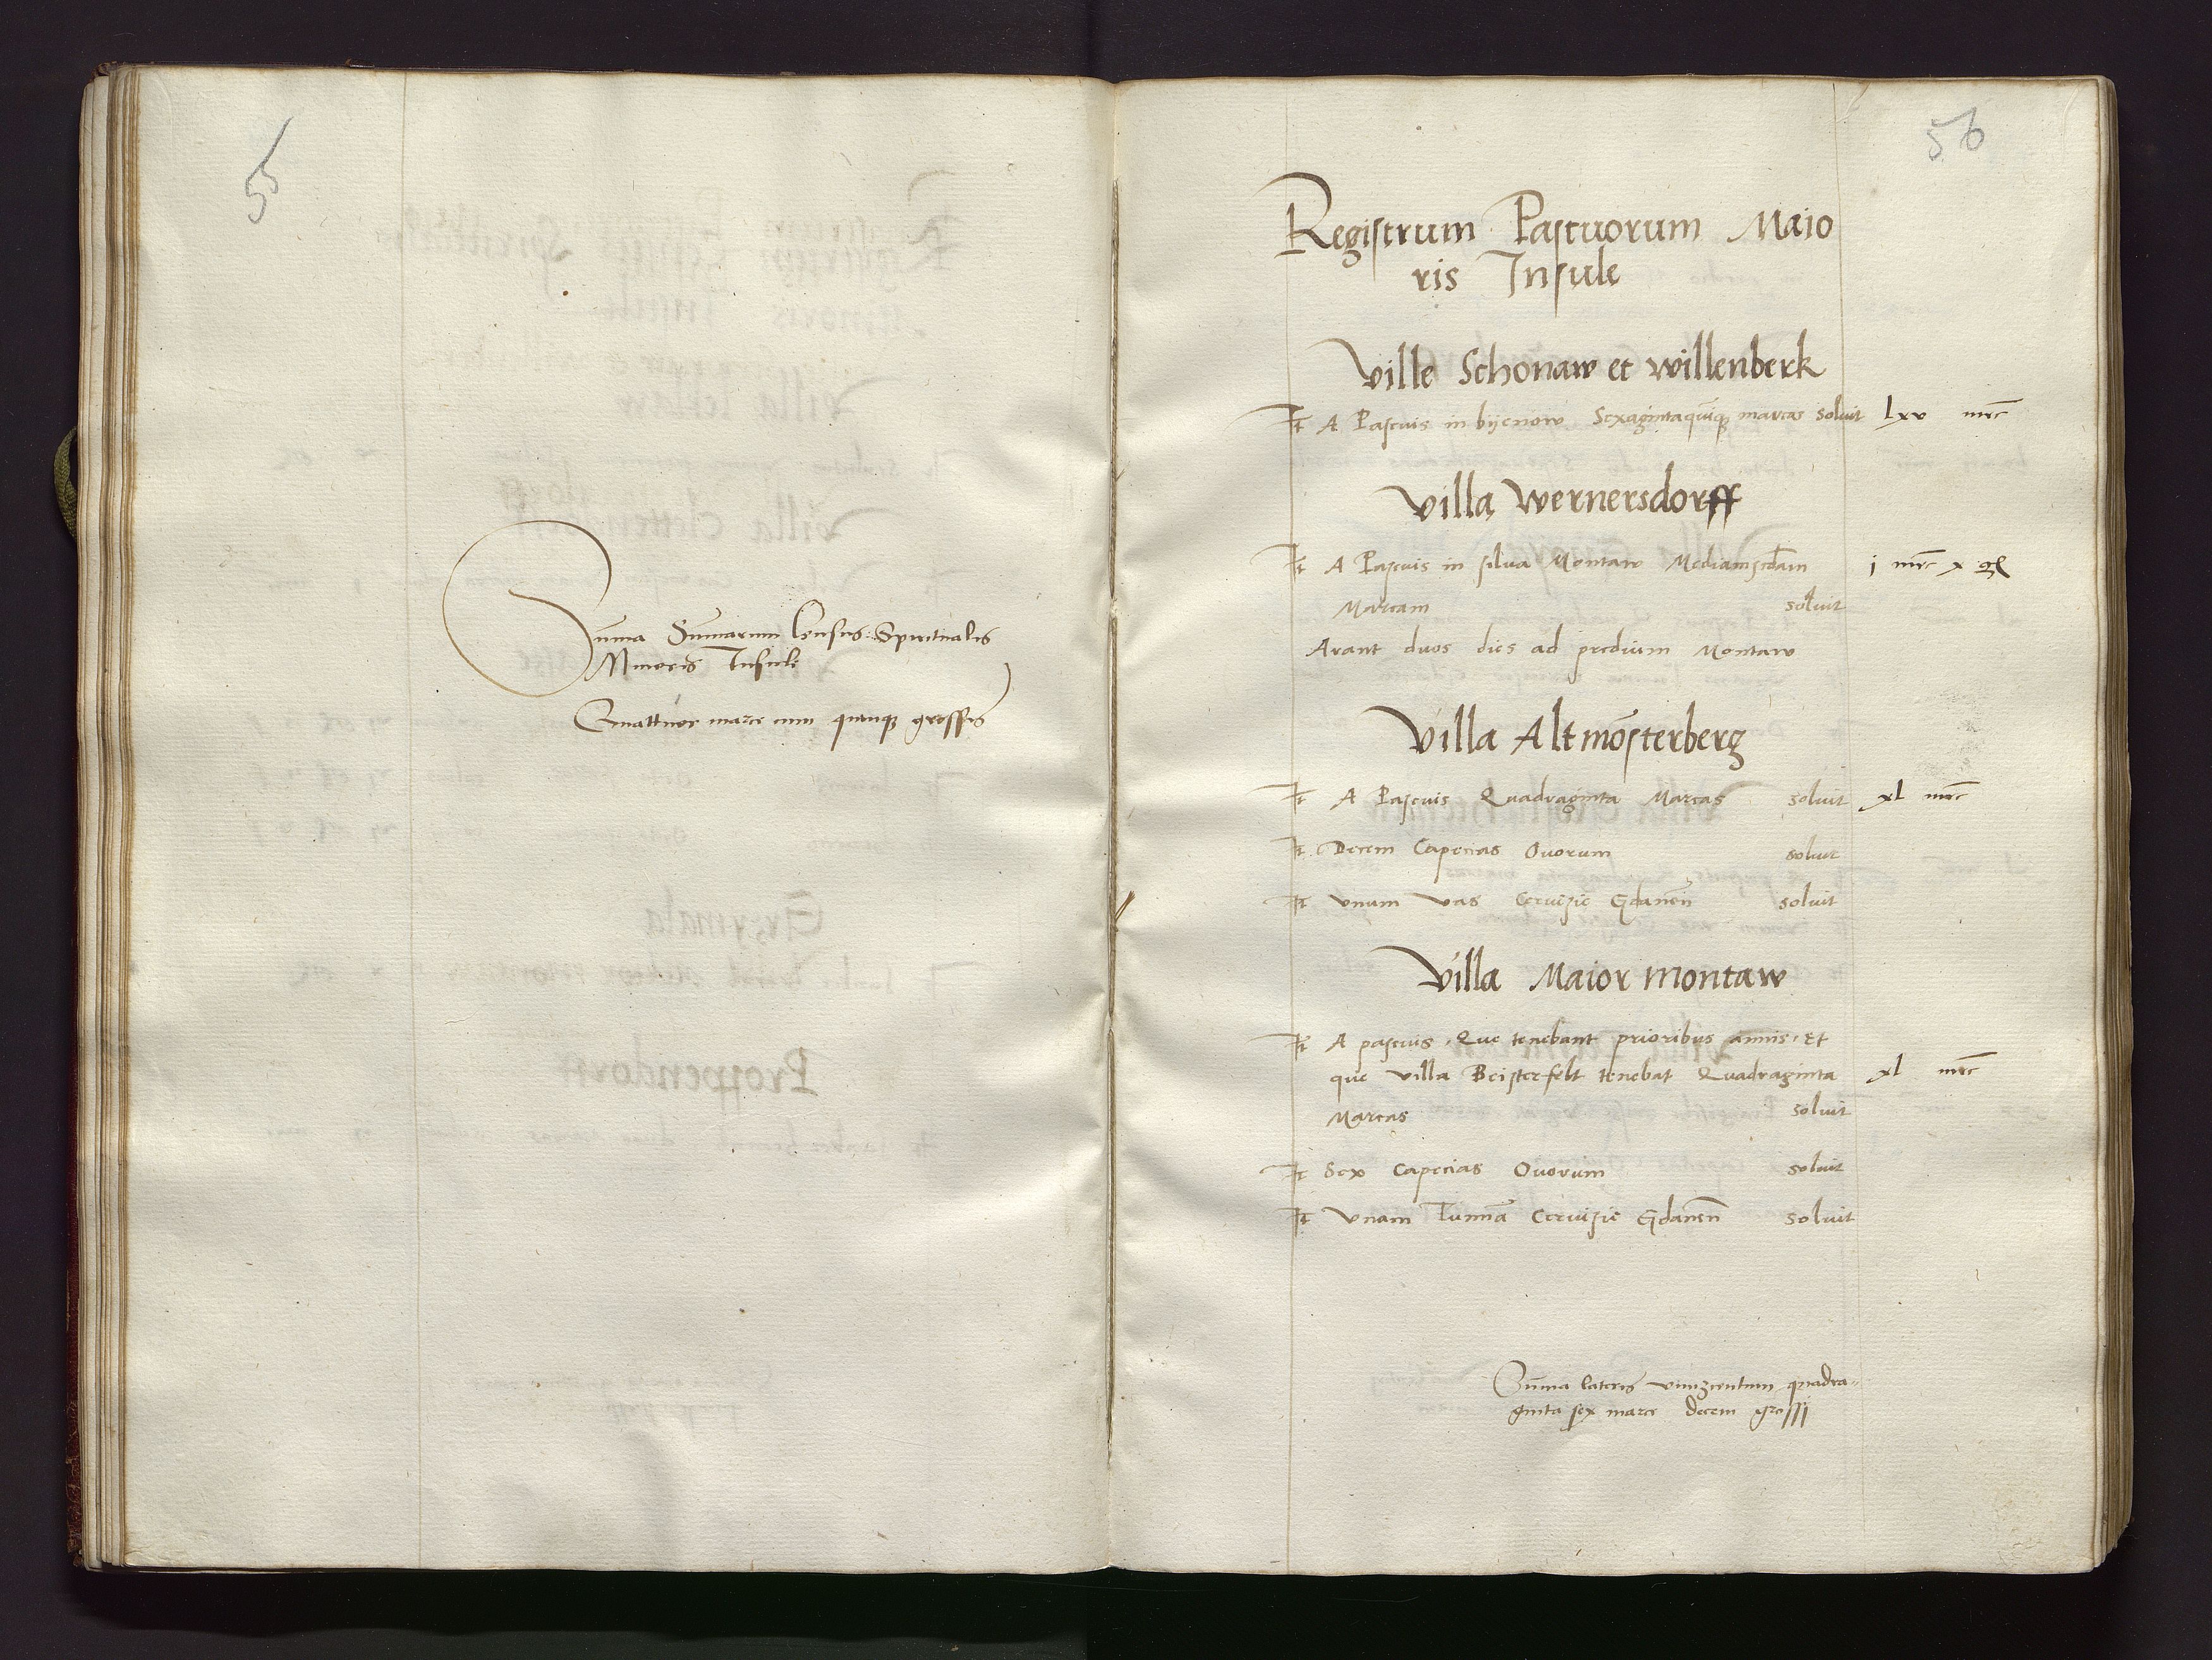 55
Sum̄a Sum̄arum Census Spiritualis
Minoris Insule
Quattuor marce cum quinqꝫ grossis
56
Registrum Pascuorum Maio
ris Insule
Ville Schonaw et willenberk
It A Pascuis in bijenow Sexagintaquīqꝫ marcas soluit lxv mrc̄
Villa Wernersdorff
It A Pascuis in silua Montaw Mediamscdam̄ j mrc̄ x gr̄
Marcam soluit
Arant duos dies ad predium Montaw
Villa Altmōsterberg
It A Pascuis Quadraginta Marcas soluit xl mrc̄
It Decem Capecias Ouorum soluit
It vnum vas Ceruisie Gdanen̄ soluit
Villa Maior Montaw
It A pascuis, Que tenebant prioribus annis, Et
que villa Beisterfelt tenebat Quadraginta xl mrc̄
Marcas soluit
It Sex Capecias Ouorum soluit
It vnam Tunnā Ceruisie Gdanen̄ soluit
Sum̄a lateris centum quadra-
ginta sex marce decem grossi